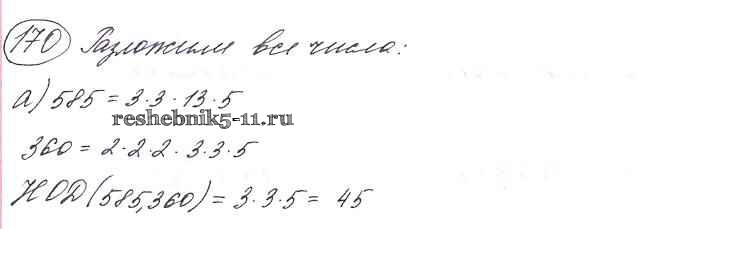 170 Разложим все числа:
а) 585 = 3·3·13·5
reshebnik5-11.ru
360 = 2·2·2·3·3·5
НОД(585,360) = 3·3·5 = 45